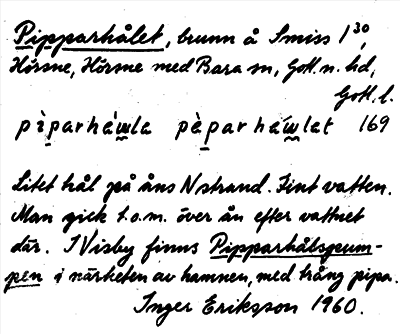 Pipparhålet, brunn å Smiss 1³⁰,
Hörsne, Hörsne med Bara sn, Gotl. n. hd,
Gotl. l.
pìparháwla pèparháwlet 169
Litet hål på åns N strand. Fint vatten.
Man gick t.o.m. över ån efter vattnet
där. I Visby finns Pipparhålspum-
pen i närheten av hamnen, med trång pipa.
Inger Eriksson 1960.